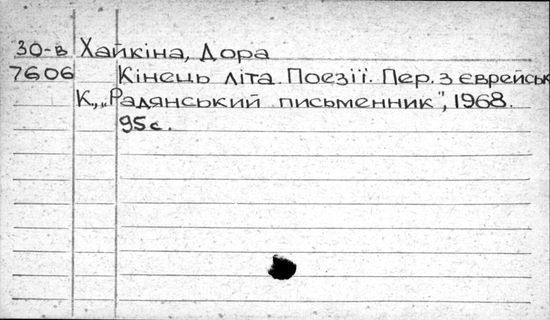 30-в Хайкіна, Дора
7606 Кінець літа. Поезії. Пер. з єврейськ
К., „Радянський письменник", 1968.
95 с.